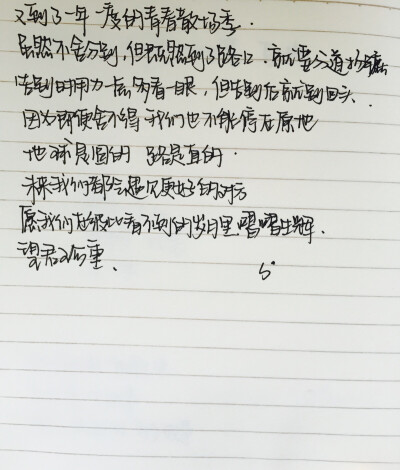 又到了一年一度的青春散场季.
虽然不舍分别,但既然到了路口.就要分道扬镳
告别时用力一点多看一眼,但告别后就别回头.
因为即便舍不得 我们也不能停在原地
地球是圆的 路是直的.
未来我们都会遇见更好的对方
愿我们在彼此看不到的岁月里熠熠生辉.
望君珍重.